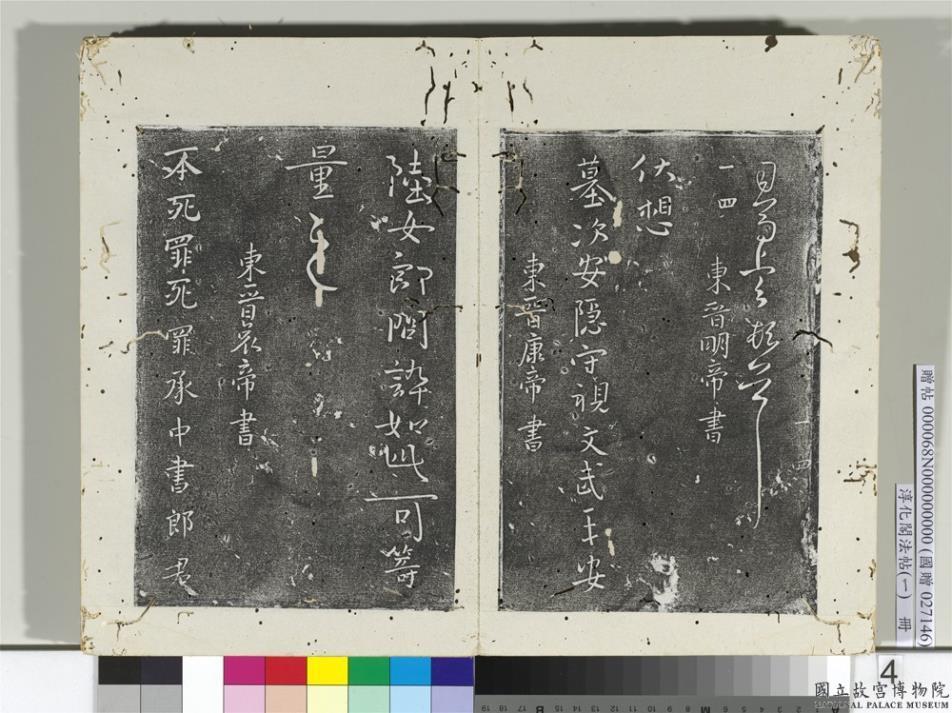 一四
東晉明帝書
伏想
墓次安隱守視文武王安
東晉康帝書
陸女郎問訃如此可籌
量
東晉哀帝書
一四
死罪死罪承中書郎君
贈帖 000068N000000000 (國贈 027146)
淳化閣法帖(一) 冊
4
國立故宮博物院
NATIONAL PALACE MUSEUM